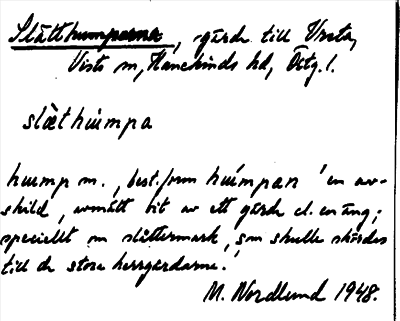 Slåtthumparna, gärde till Unsta,
Vists sn, Hanekinds hd, Östg. l.
slåthumpa
hump m., best. form humpan 'en av-
skild, avmätt bit av ett gärde el. en äng;
speciellt om slåttermark, som skulle skördas
till de stora herrgårdarna.'
M. Nordlund 1948.